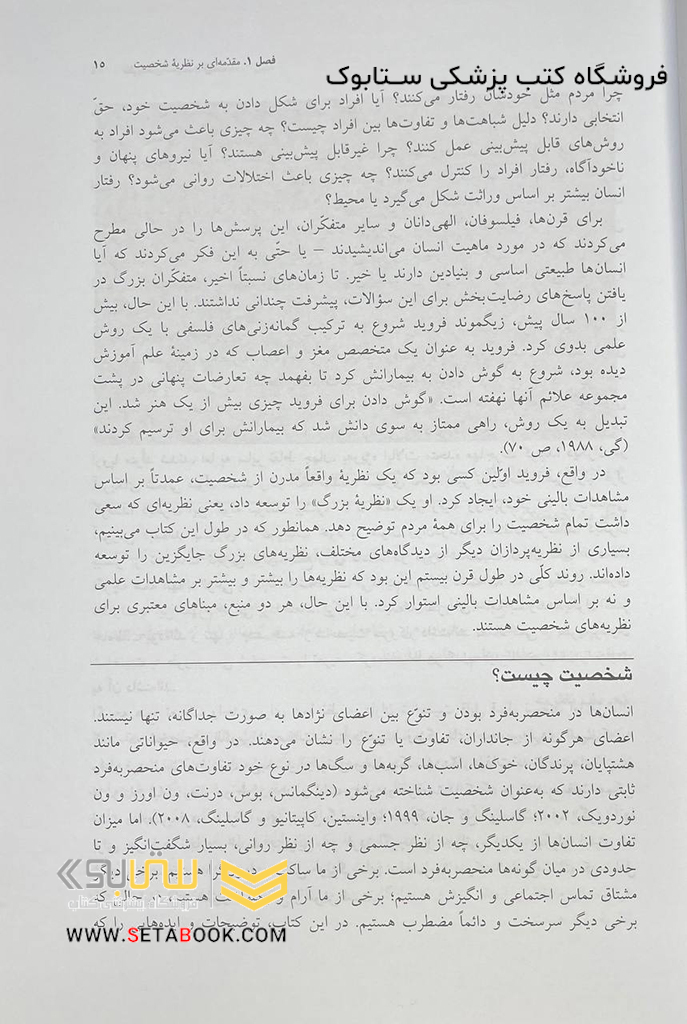 فصل ۱. مقدّمه‌ای بر نظریهٔ شخصیت ۱۵
فروشگاه کتب پزشکی ستابوک
چرا مردم مثل خودشان رفتار می‌کنند؟ آیا افراد برای شکل دادن به شخصیت خود، حقّ
انتخابی دارند؟ دلیل شباهت‌ها و تفاوت‌ها بین افراد چیست؟ چه چیزی باعث می‌شود افراد به
روش‌های قابل پیش‌بینی عمل کنند؟ چرا غیرقابل پیش‌بینی هستند؟ آیا نیروهای پنهان و
ناخودآگاه، رفتار افراد را کنترل می‌کنند؟ چه چیزی باعث اختلالات روانی می‌شود؟ رفتار
انسان بیشتر بر اساس وراثت شکل می‌گیرد یا محیط؟
برای قرن‌ها، فیلسوفان، الهی‌دانان و سایر متفکّران، این پرسش‌ها را در حالی مطرح
می‌کردند که در مورد ماهیت انسان می‌اندیشیدند – یا حتّی به این فکر می‌کردند که آیا
انسان‌ها طبیعتی اساسی و بنیادین دارند یا خیر. تا زمان‌های نسبتاً اخیر، متفکّران بزرگ در
یافتن پاسخ‌های رضایت‌بخش برای این سؤالات، پیشرفت چندانی نداشتند. با این حال، بیش
از ۱۰۰ سال پیش، زیگموند فروید شروع به ترکیب گمانه‌زنی‌های فلسفی با یک روش
علمی بدوی کرد. فروید به عنوان یک متخصص مغز و اعصاب که در زمینهٔ علم آموزش
دیده بود، شروع به گوش دادن به بیمارانش کرد تا بفهمد چه تعارضات پنهانی در پشت
مجموعه علائم آنها نهفته است. «گوش دادن برای فروید چیزی بیش از یک هنر شد. این
تبدیل به یک روش، راهی ممتاز به سوی دانش شد که بیمارانش برای او ترسیم کردند»
(گی، ۱۹۸۸، ص ۷۰).
در واقع، فروید اوّلین کسی بود که یک نظریهٔ واقعاً مدرن از شخصیت، عمدتاً بر اساس
مشاهدات بالینی خود، ایجاد کرد. او یک «نظریهٔ بزرگ» را توسعه داد، یعنی نظریه‌ای که سعی
داشت تمام شخصیت را برای همهٔ مردم توضیح دهد. همانطور که در طول این کتاب می‌بینیم،
بسیاری از نظریه‌پردازان دیگر از دیدگاه‌های مختلف، نظریه‌های بزرگ جایگزین را توسعه
داده‌اند. روند کلّی در طول قرن بیستم این بود که نظریه‌ها را بیشتر و بیشتر بر مشاهدات علمی
و نه بر اساس مشاهدات بالینی استوار کرد. با این حال، هر دو منبع، مبناهای معتبری برای
نظریه‌های شخصیت هستند.
شخصیت چیست؟
انسان‌ها در منحصربه‌فرد بودن و تنوّع بین اعضای نژادها به صورت جداگانه، تنها نیستند.
اعضای هرگونه از جانداران، تفاوت یا تنوّع را نشان می‌دهند. در واقع، حیواناتی مانند
هشتپایان، پرندگان، خوک‌ها، اسب‌ها، گربه‌ها و سگ‌ها در نوع خود تفاوت‌های منحصربه‌فرد
ثابتی دارند که به‌عنوان شخصیت شناخته می‌شود (دینگمانس، بوس، درنت، ون اورز و ون
نوردویک، ۲۰۰۲؛ گاسلینگ و جان، ۱۹۹۹؛ واینستین، کاپیتانیو و گاسلینگ، ۲۰۰۸). اما میزان
تفاوت انسان‌ها از یکدیگر، چه از نظر جسمی و چه از نظر روانی، بسیار شگفت‌انگیز و تا
حدودی در میان گونه‌ها منحصربه‌فرد است. برخی از ما ساکت و درون‌گرا هستیم، برخی دیگر
مشتاق تماس اجتماعی و انگیزش هستیم؛ برخی از ما آرام و هستیم، در حالی که
برخی دیگر سرسخت و دائماً مضطرب هستیم. در این کتاب، توضیحات و ایده‌هایی را که
ستابوک
فروشگاه اینترنتی کتاب
WWW.SETABOOK.COM